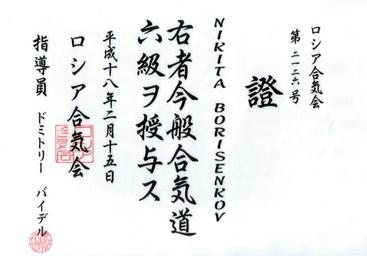 ロシア合気会
第二一二六号
證
NIKITA BORISENKOV
右者今般合気道
六級ヲ授与ス
平成十八年二月十五日
ロシア合気会
指導員 ドミトリー バイデル